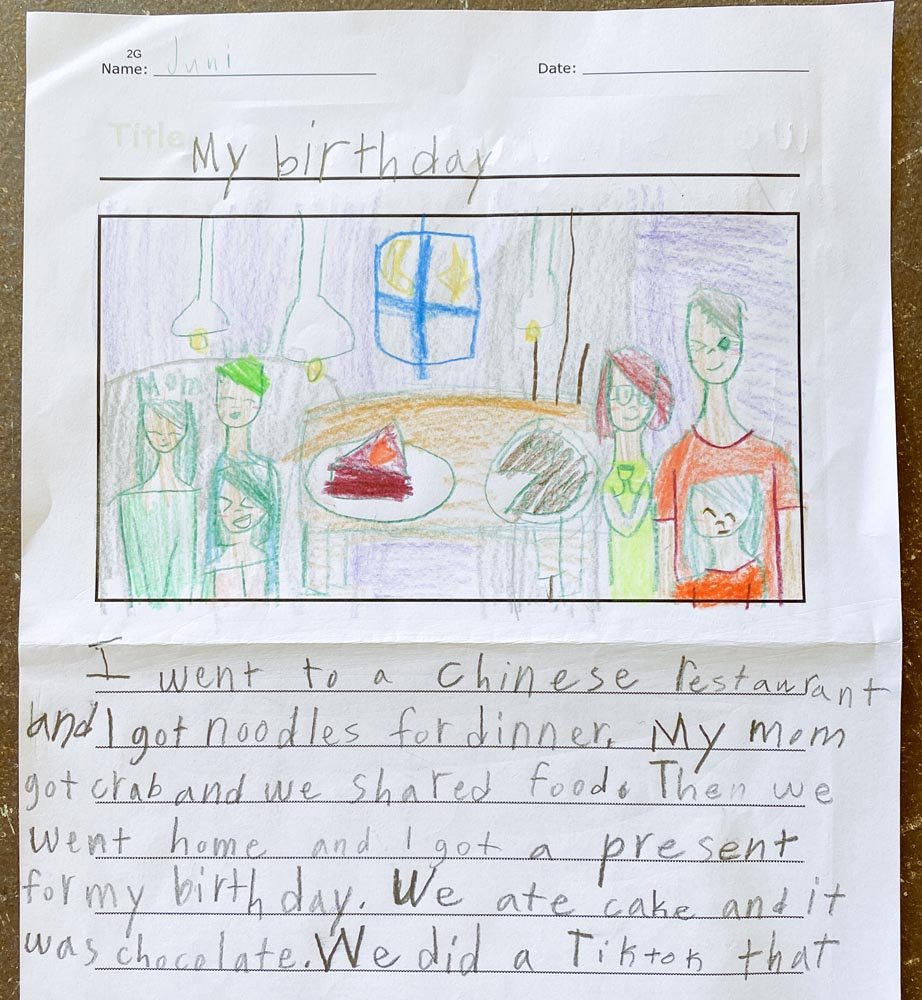 2G
Name: Juni Date:
Title
My birthday
Mom Dad
I went to a Chinese restaurant
and I got noodles for dinner. My mom
got crab and we shared food. Then we
went home and I got a present
for my birthday. We ate cake and it
was chocolate. We did a Tiktok that